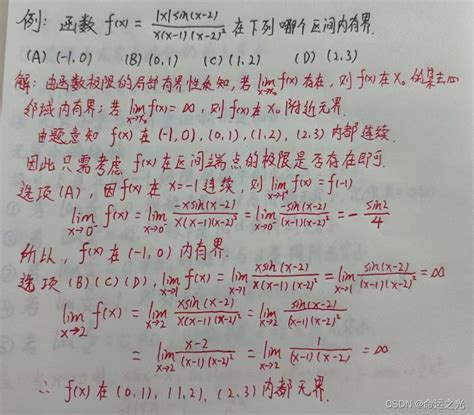 例: 函数 f(x) = |x|sin(x-2) / x(x-1)(x-2)² 在下列哪个区间内有界.
(A) (-1,0) (B) (0,1) (C) (1,2) (D) (2,3)
解: 由函数极限的局部有界性质知, 若 lim x→x₀ f(x) 存在, 则 f(x) 在 x₀ 的某去心
邻域内有界; 若 lim x→x₀ f(x) = ∞, 则 f(x) 在 x₀ 附近无界.
由题意知 f(x) 在 (-1,0), (0,1), (1,2), (2,3) 内部连续.
因此只需考虑 f(x) 在区间端点的极限是否存在即可.
选项 (A), 因 f(x) 在 x=-1 连续, 则 lim x→-1⁺ f(x) = f(-1)
lim x→0⁻ f(x) = lim x→0⁻ -xsin(x-2) / x(x-1)(x-2)² = lim x→0⁻ -sin(x-2) / (x-1)(x-2)² = - sin2 / 4
所以, f(x) 在 (-1,0) 内有界.
选项 (B)(C)(D), lim x→1 f(x) = lim x→1 xsin(x-2) / x(x-1)(x-2)² = lim x→1 sin(x-2) / (x-1)(x-2)² = ∞
lim x→2 f(x) = lim x→2 xsin(x-2) / x(x-1)(x-2)² = lim x→2 sin(x-2) / (x-1)(x-2)²
= lim x→2 x-2 / (x-1)(x-2)² = lim x→2 1 / (x-1)(x-2) = ∞
∴ f(x) 在 (0,1), (1,2), (2,3) 内都无界.
CSDN @命运之光